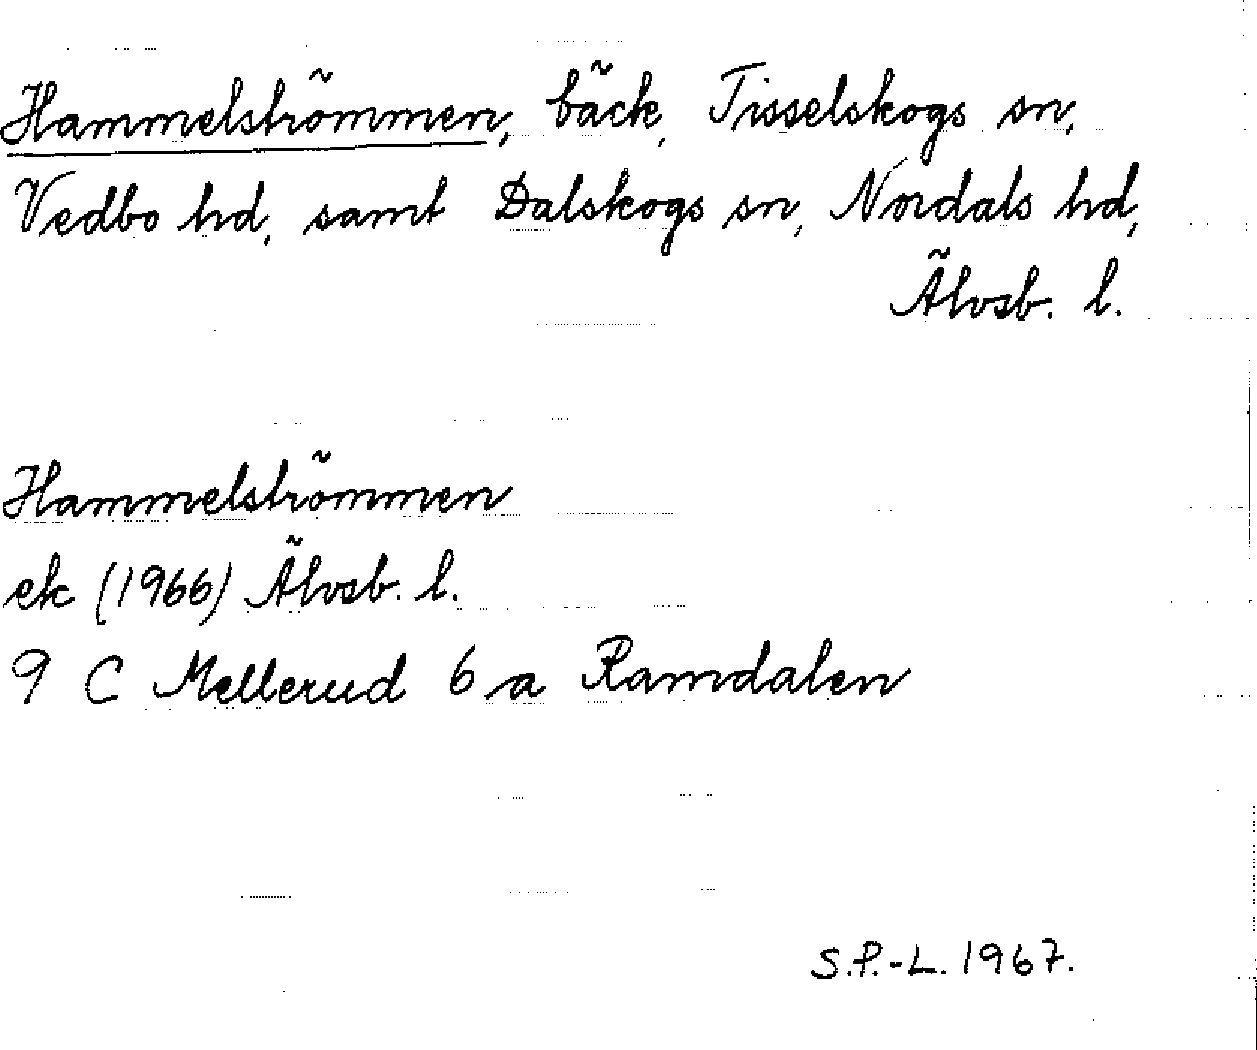 Hammelströmmen, bäck, Tisselskogs sn,
Vedbo hd, samt Dalskogs sn, Nordals hd,
Älvsb. l.
Hammelströmmen
ek (1966) Älvsb. l.
9 C Mellerud 6 a Ramdalen
S.P.-L. 1967.